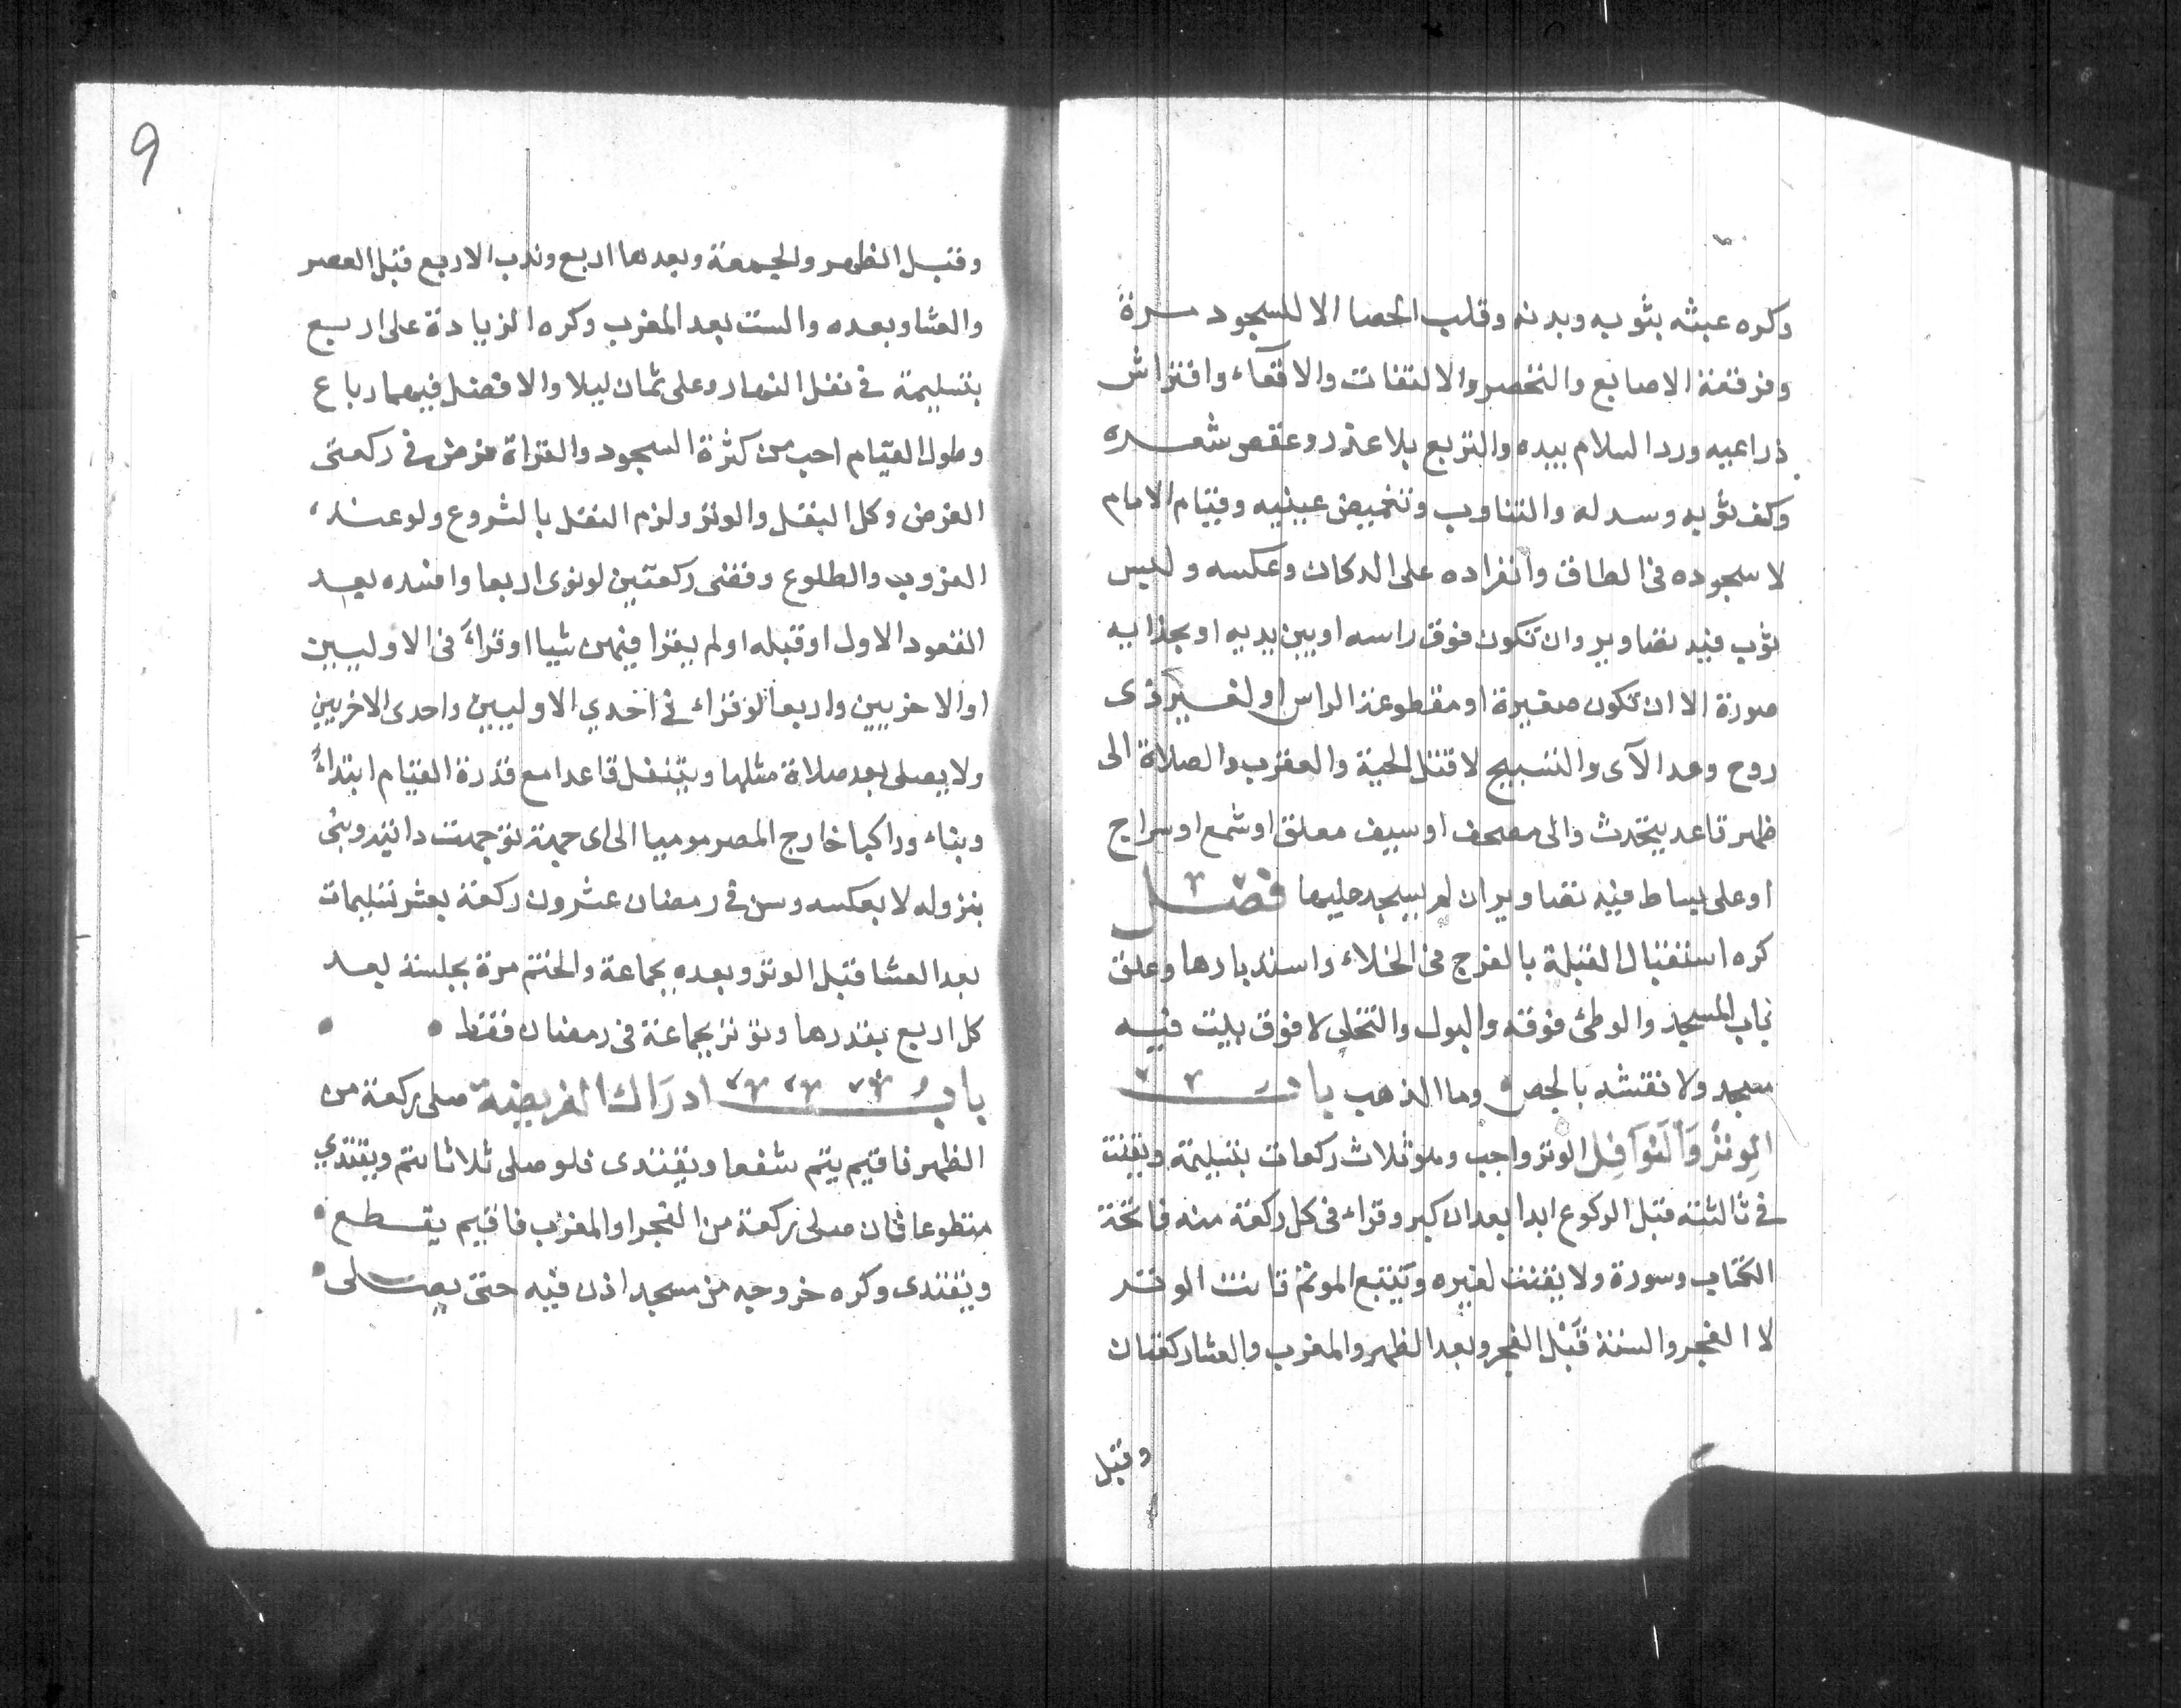 وكره عبثه بثوبه وبدنه وقلب الحصا الا للسجود مرة
وفرقعة الاصابع والتخصر والالتفات والاقعآء وافتراش
ذراعيه ورد السلام بيده والتربع بلا عذر وعقص شعره
وكف ثوبه وسدله والتثاوب وتغميض عينيه وقيام الامام
لا سجوده فى الطاق وانفراده على الدكان وعكسه ولبس
ثوب فيه تصاوير وان تكون فوق راسه او بين يديه او بحذايه
صورة الا ان تكون صغيرة او مقطوعة الراس او لغير ذى
روح وعد الآى والتسبيح لا قتل الحية والعقرب والصلاة الى
ظهر قاعد يتحدث والى مصحف او سيف معلق او شمع او سراج
او على بساط فيه تصاوير ان لم يسجد عليها فصل
كره استقبال القبلة بالفرج فى الخلاء واستدبارها وغلق
باب المسجد والوطئ فوقه والبول والتخلى لا فوق بيت فيه
مسجد ولا نقشه بالجص وما الذهب باب
الوِترُ وَالنوَافِل الوتر واجب وهو ثلاث ركعات بتسليمة ويقنت
فى ثالثته قبل الركوع ابدا بعد ان كبر وقراء فى كل ركعة منه فاتحة
الكتاب وسورة ولا يقنت لغيره ويتبع الموتم قانت الوتر
لا الفجر والسنة قبل الفجر وبعد الظهر والمغرب والعشا ركعتان
وقبل
9
وقبل الظهر والجمعة وبعدها اربع وندب الاربع قبل العصر
والعشا وبعده والست بعد المغرب وكره الزيادة على اربع
بتسليمة فى نفل النهار وعلى ثمان ليلا والافضل فيهما رباع
وطول القيام احب من كثرة السجود والقراة فرض فى ركعتى
الفرض وكل النفل والوتر ولزم النفل بالشروع ولو عند
الغروب والطلوع وقضى ركعتين لو نوى اربعا وافسده بعد
القعود الاول او قبله او لم يقرا فيهن شيا او قراءَ فى الاوليين
او الاخريين واربعا لو قراء فى احدي الاوليين واحدى الاخريين
ولا يصلى بعد صلاة مثلها ويتنفل قاعدا مع قدرة القيام ابتداءً
وبناء وراكبا خارج المصر موميا الى اى جهة توجهت دابته وبنى
بنزوله لا بعكسه وسن فى رمضان عشرون ركعة بعشر تسليمات
بعد العشا قبل الوتر وبعده بجماعة والختم مرة بجلسة بعد
كل اربع بقدرها ويوتر بجماعة فى رمضان فقط
باب ادرَاك الفريضة صلى ركعة من
الظهر فاقيم يتم شفعا ويقتدى فلو صلى ثلاثا يتم ويقتدي
متطوعا فان صلى ركعة من الفجر او المغرب فاقيم يقطع
ويقتدى وكره خروجه من مسجد اذن فيه حتى يصلى